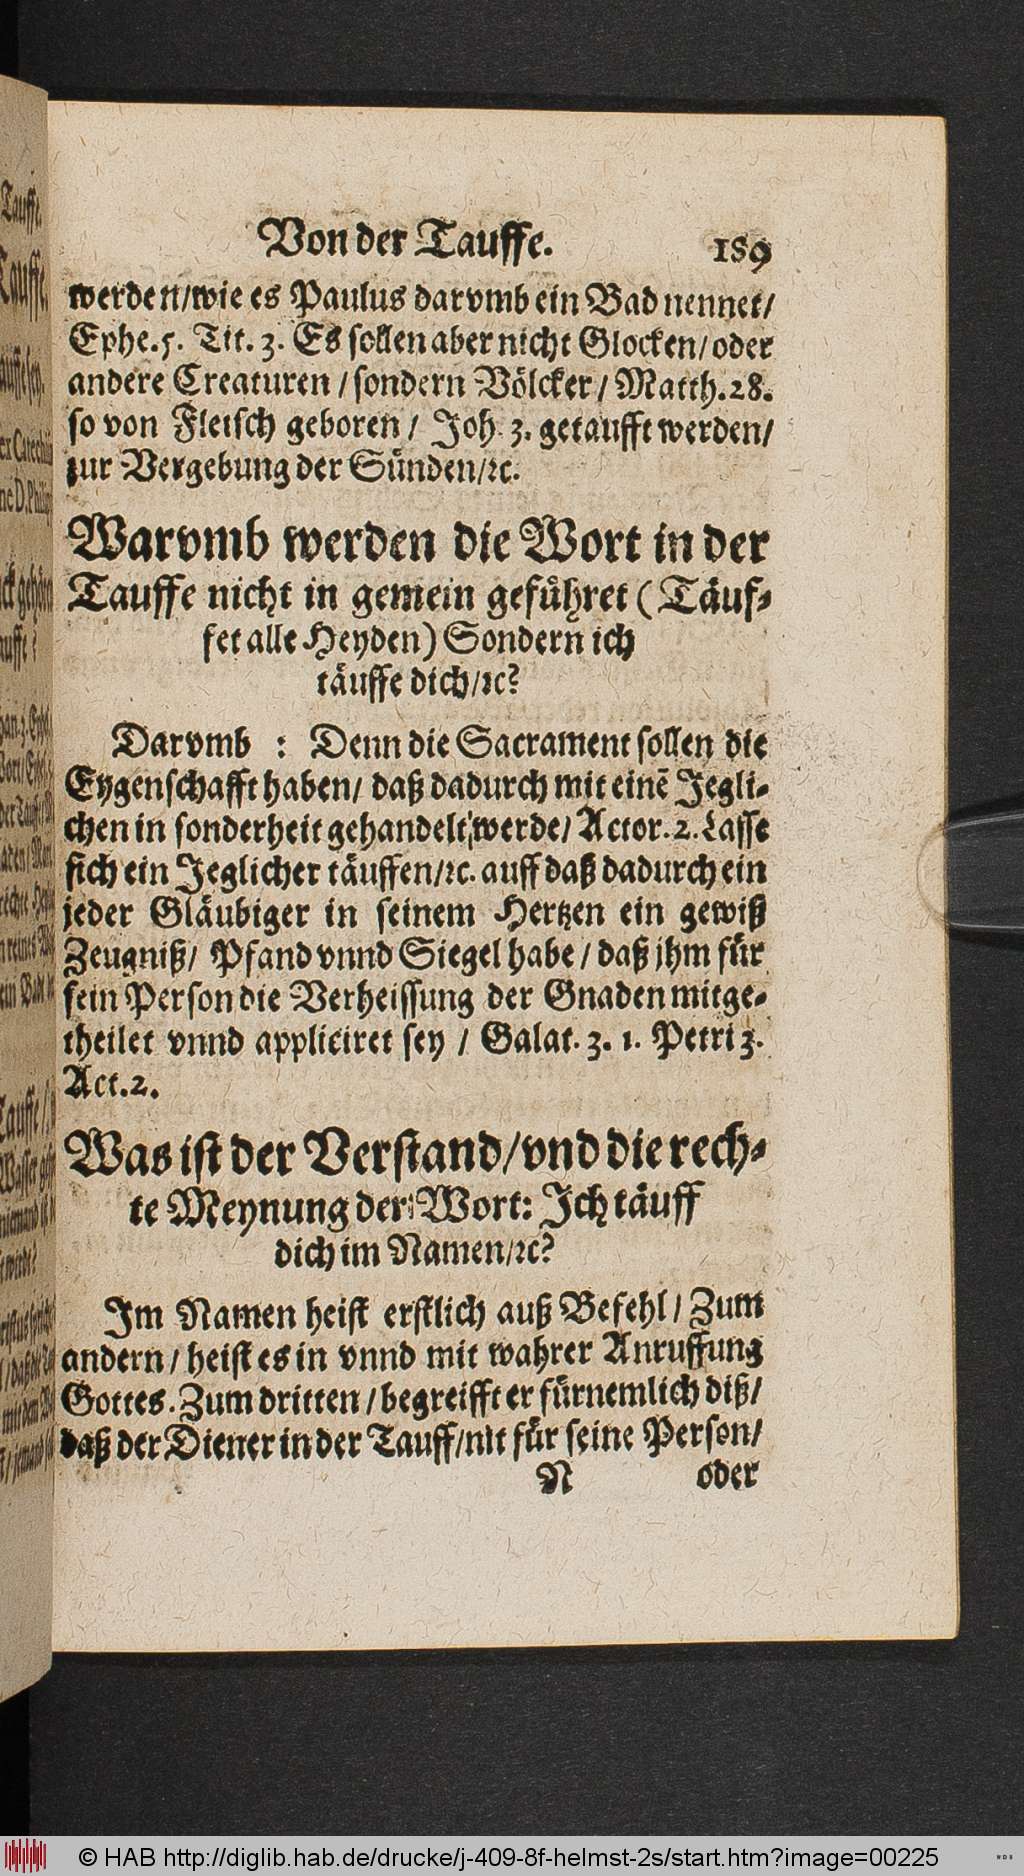 Von der Tauffe. 189
werden/wie es Paulus darvmb ein Bad nennet/
Ephe.5. Tit. 3. Es sollen aber nicht Glocken/oder
andere Creaturen / sondern Völcker/ Matth.28.
so von Fleisch geboren / Joh. 3. getaufft werden/
zur Vergebung der Sünden/ꝛc.
Warvmb werden die Wort in der
Tauffe nicht in gemein geführet ( Täuf-
fet alle Heyden) Sondern ich
täuffe dich/ꝛc?
Darvmb : Denn die Sacrament sollen die
Eygenschafft haben/ daß dadurch mit einẽ Jegli-
chen in sonderheit gehandelt werde/ Actor. 2. Lasse
sich ein Jeglicher täuffen/ꝛc. auff daß dadurch ein
jeder Gläubiger in seinem Hertzen ein gewiß
Zeugniß/ Pfand vnnd Siegel habe / daß jhm für
sein Person die Verheissung der Gnaden mitge-
theilet vnnd appliciret sey / Galat. 3. 1. Petri 3.
Act.2.
Was ist der Verstand/vnd die rech-
te Meynung der Wort: Jch täuff
dich im Namen/ꝛc?
Im Namen heist erstlich auß Befehl / Zum
andern / heist es in vnnd mit wahrer Anruffung
Gottes. Zum dritten / begreifft er fürnemlich diß/
daß der Diener in der Tauff/nit für seine Person/
N oder
© HAB http://diglib.hab.de/drucke/j-409-8f-helmst-2s/start.htm?image=00225